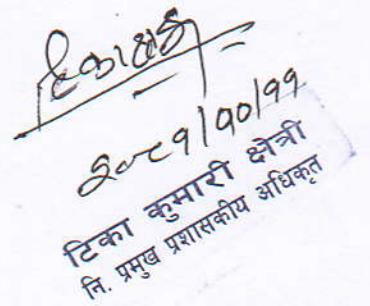 २०८१/१०/११
टिका कुमारी क्षेत्री
नि. प्रमुख प्रशासकीय अधिकृत